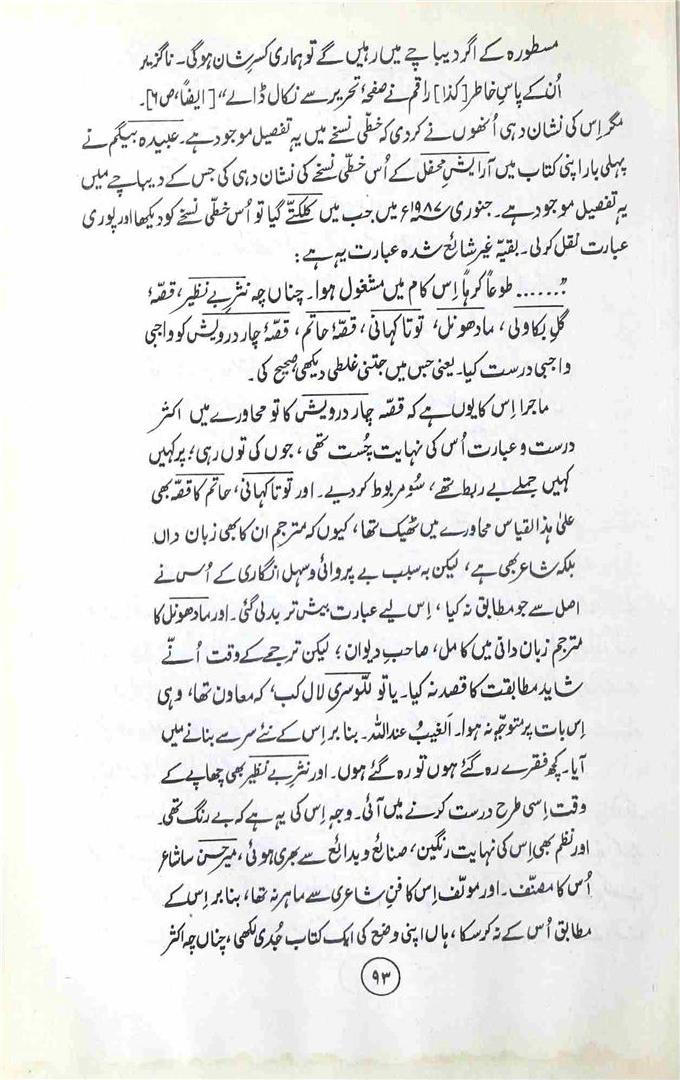 مسطورہ کے اگر دیباچے میں رہیں گے تو ہماری کسرِ شان ہوگی۔ ناگزیر
اُن کے پاسِ خاطر [کذا] راقم نے صفحۂ تحریر سے نکال ڈالے“ [ایضاً، ص ۶]۔
مگر اِس کی نشان دہی اُنھوں نے کردی کہ خطّی نسخے میں یہ تفصیل موجود ہے۔ عبیدہ بیگم نے
پہلی بار اپنی کتاب میں آرایشِ محفل کے اُس خطّی نسخے کی نشان دہی کی جس کے دیباچے میں
یہ تفصیل موجود ہے۔ جنوری ۱۹۸۷ء میں جب میں کلکتے گیا تو اُس خطّی نسخے کو دیکھا اور پوری
عبارت نقل کرلی۔ بقیہ غیر شائع شدہ عبارت یہ ہے:
”...... طوعاً کرہاً اِس کام میں مشغول ہوا۔ چناں چہ نثرِ بے نظیر، قصّۂ
گلِ بکاولی، مادھونل، توتا کہانی، قصّۂ حاتم، قصّۂ چار درویش کو واجبی
واجبی درست کیا۔ یعنی جس میں جتنی غلطی دیکھی صحیح کی۔
ماجرا اِس کا یوں ہے کہ قصّہ چہار درویش کا تو محاورے میں اکثر
درست و عبارت اُس کی نہایت چُست تھی، جوں کی توں رہی؛ پر کہیں
کہیں جملے بے ربط تھے، سُو مربوط کردیے۔ اور توتا کہانی، حاتم کا قصّہ بھی
علیٰ ہذا القیاس محاورے میں ٹھیک تھا، کیوں کہ مترجم ان کا بھی زبان داں
بلکہ شاعر بھی ہے، لیکن بہ سبب بے پروائی و سہل انگاری کے اُس نے
اصل سے جو مطابق نہ کیا، اِس لیے عبارت بیش تر بدلی گئی۔ اور مادھونل کا
مترجم زبان دانی میں کامل، صاحبِ دیوان؛ لیکن ترجمے کے وقت اُنّے
شاید مطابقت کا قصد نہ کیا۔ یا تو للّو سری لال کب، کہ معاون تھا، وہی
اِس بات پر متوجّہ نہ ہوا۔ اَلغیبُ عنداللہ۔ بنا بر اِس کے نئے سر سے بنانے میں
آیا۔ کچھ فقرے رہ گئے ہوں تو رہ گئے ہوں۔ اور نثرِ بے نظیر بھی چھاپے کے
وقت اِسی طرح درست کرنے میں آئی۔ وجہ اِس کی یہ ہے کہ بے رنگ تھی۔
اور نظم بھی اِس کی نہایت رنگین، صنائع و بدائع سے بھری ہوئی، میر حسن سا شاعر
اُس کا مصنّف۔ اور مولف اِس کا فنِ شاعری سے ماہر نہ تھا، بنا بر اِس کے
مطابق اُس کے نہ کرسکا، ہاں اپنی وضع کی ایک کتاب جُدی لکھی، چناں چہ اکثر
۹۳